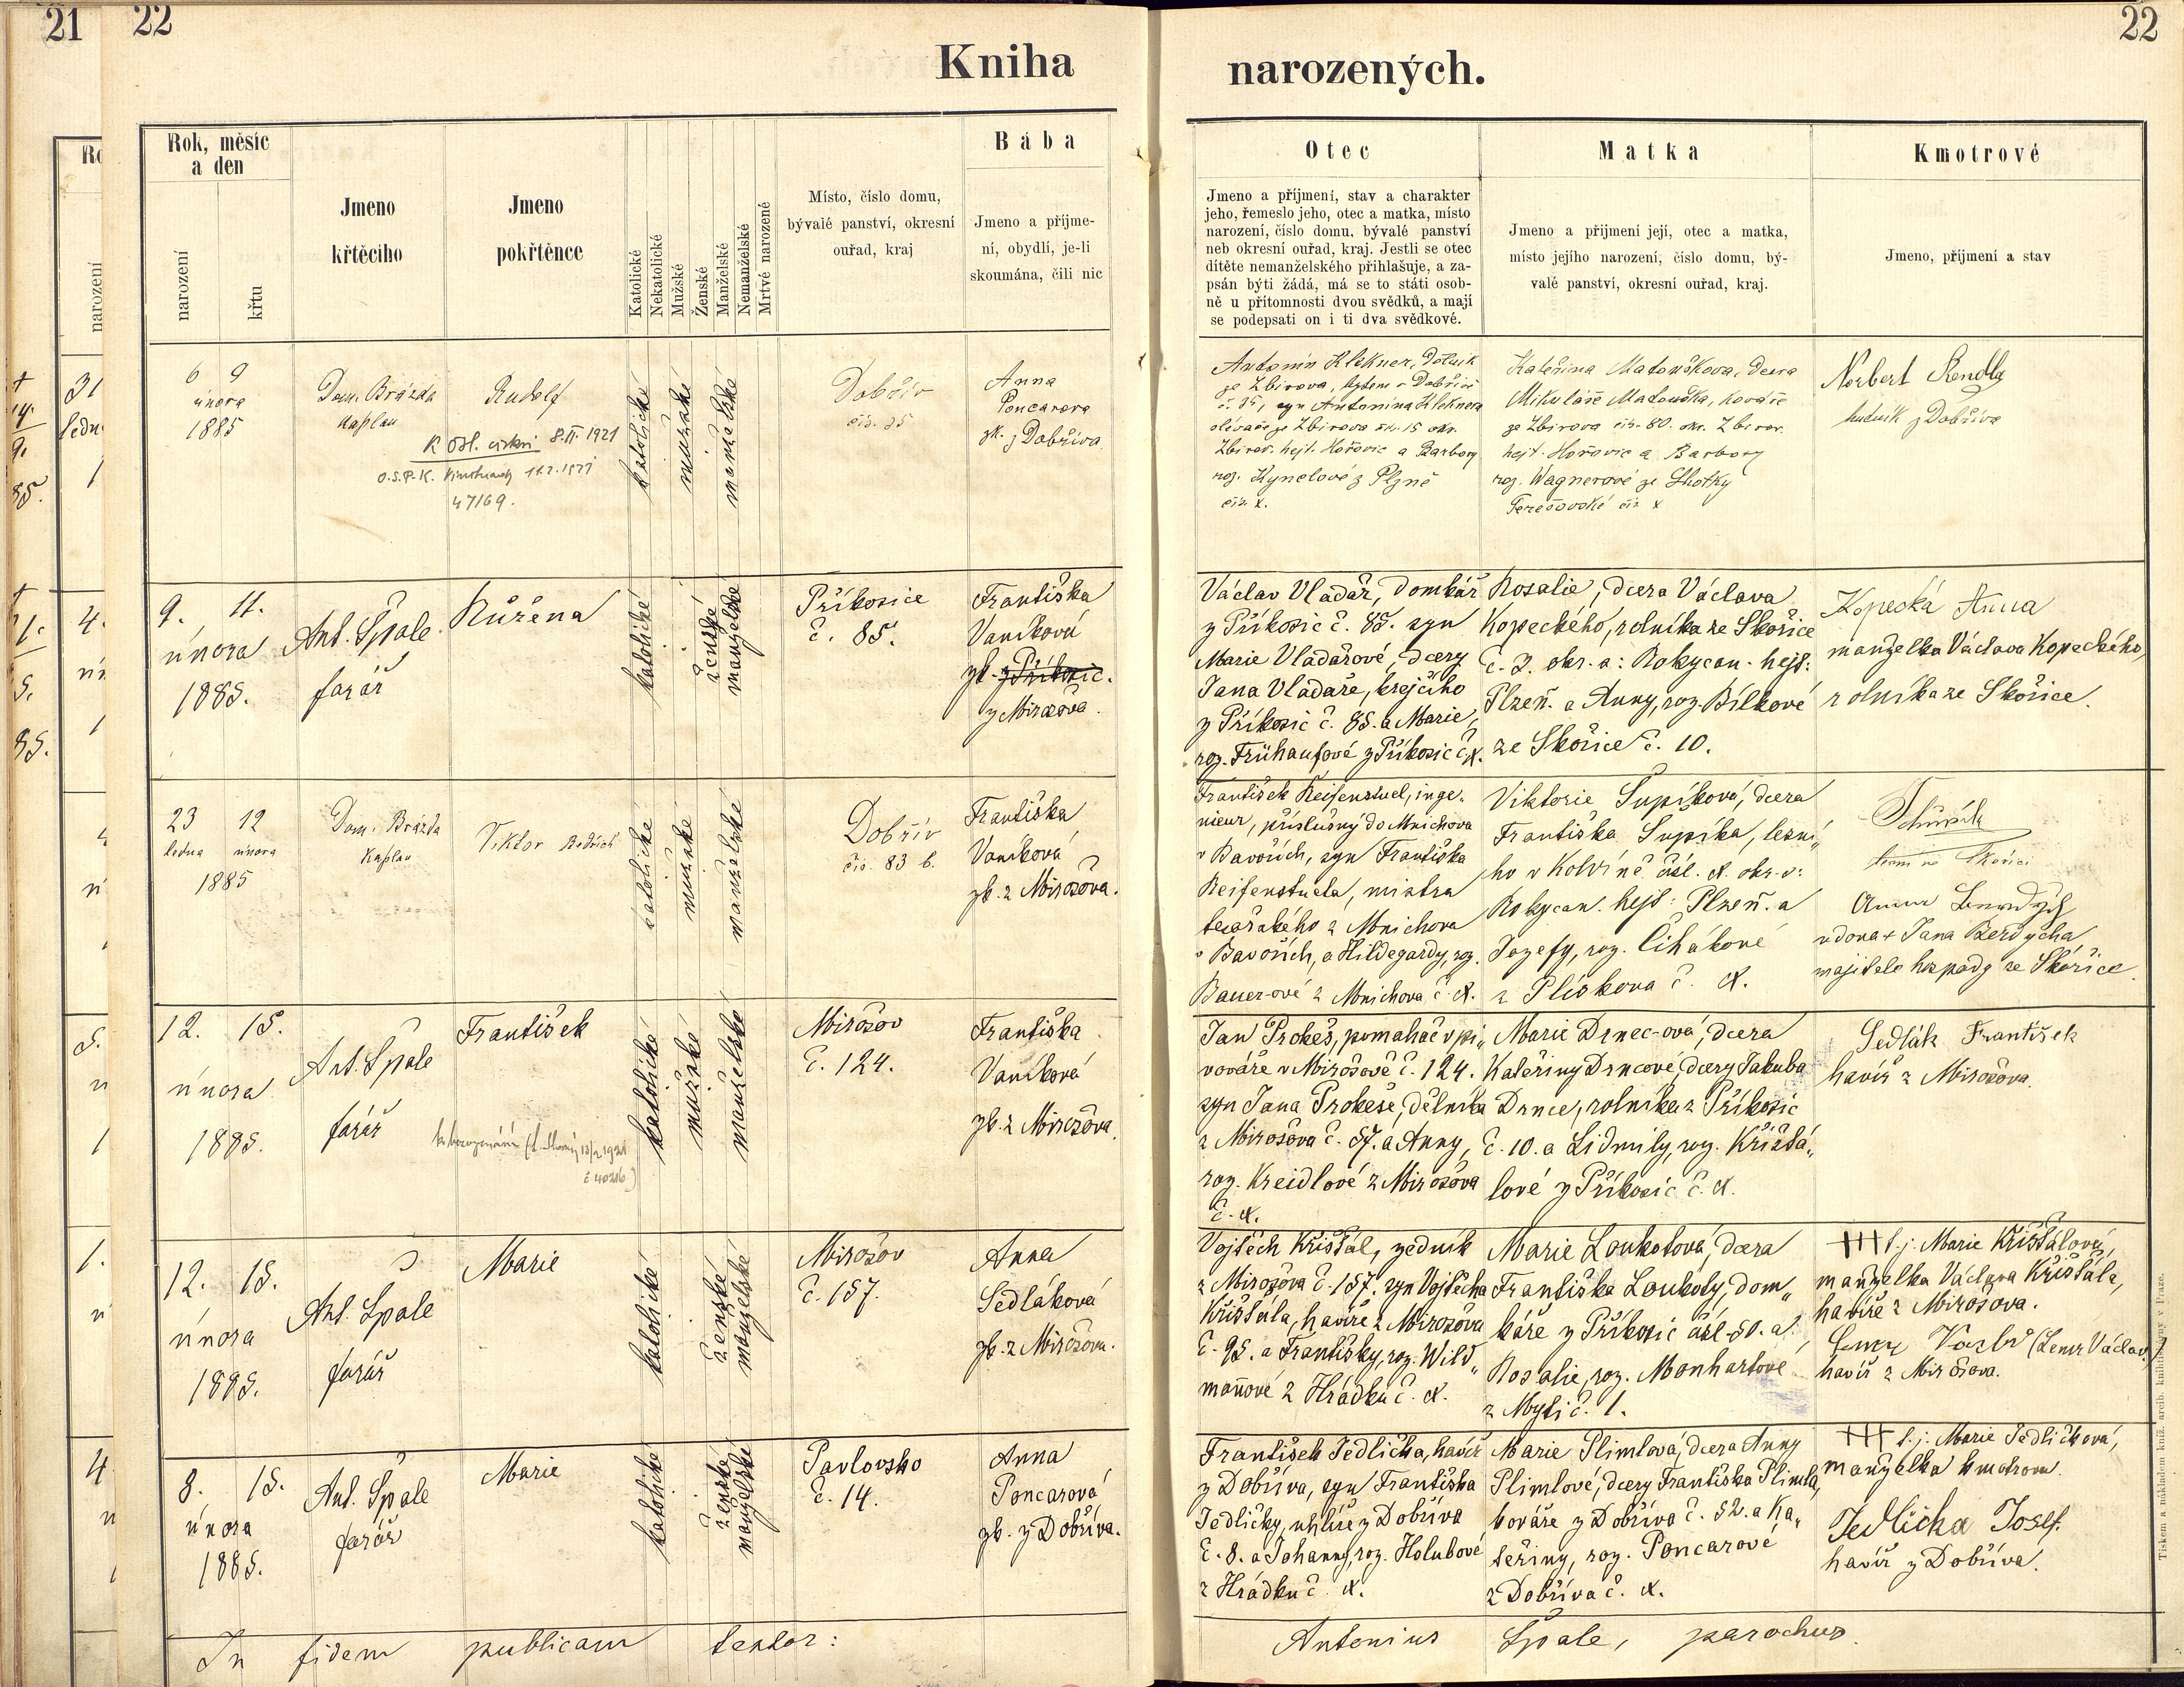 21
22
22
Kniha
narozených.
Rok, měsíc
a den
narození
křtu
Jmeno
křtěcího
Jmeno
pokřtěnce
Katolické
Nekatolické
Mužské
Ženské
Manželské
Nemanželské
Mrtvé narozené
Místo, číslo domu,
bývalé panství, okresní
ouřad, kraj
Bába
Jmeno a příjme-
ní, obydlí, je-li
skoumána, čili nic
Otec
Jmeno a příjmení, stav a charakter
jeho, řemeslo jeho, otec a matka, místo
narození, číslo domu, bývalé panství
neb okresní ouřad, kraj. Jestli se otec
dítěte nemanželského přihlašuje, a za-
psán býti žádá, má se to státi osob-
ně u přítomnosti dvou svědků, a mají
se podepsati on i ti dva svědkové.
Matka
Jmeno a přijmení její, otec a matka,
místo jejího narození, číslo domu, bý-
valé panství, okresní ouřad, kraj.
Kmotrové
Jmeno, příjmení a stav
6 9
února
1885
Dom. Brázda
kaplan
Rudolf
K Osl. církvi 8.II.1921
O.S.P.K. 11.2.1921
47169.
katolické
mužské
manželské
Dobřív
čís. 35
Anna
Poncarova
zk. z Dobříva
Antonín Klekner, dělník
ze Zbirova, bytem v Dobřívě
č. 35, syn Antonína Kleknera
slévače ze Zbirova čís. 15 okr.
Zbirov. hejt. Hořovic a Barbory
roz. Kynclové z Plzně
čís. x.
Kateřina Matouškova, dcera
Mikuláše Matouška, kováře
ze Zbirova čís. 80. okr. Zbirov.
hejt. Hořovic a Barbory
roz. Wagnerové ze Lhotky
Terešovské čís x
Norbert Rendla
hutník z Dobříva
9. 11.
února
1885.
Ant. Špale
farář
Růžena
katolické
ženské
manželské
Příkosice
č. 85.
Františka
Vaníková
zk. z Příkosic.
z Mirošova.
Václav Vladař, domkář
z Příkosic č. 85. syn
Marie Vladařové, dcery
Jana Vladaře, krejčího
z Příkosic č. 85. a Marie,
roz. Frühaufové z Příkosic č. x.
Rosalie, dcera Václava
Kopeckého, rolníka ze Skořice
č. 3. okr. s: Rokycan. hejt:
Plzeň. a Anny, roz. Bílkové
ze Skořice č. 10.
Kopecká Anna
manželka Václava Kopeckého,
rolníka ze Skořice.
23 12
ledna února
1885
Dom. Brázda
Kaplan
Viktor Bedřich
katolické
mužské
manželské
Dobřív
čís. 83 b.
Františka
Vaníková
zk. z Mirošova.
František Reifenstuel, inge„
nieur, příslušný do Mnichova
v Bavořích, syn Františka
Reifenstuela, mistra
tesařského z Mnichova
v Bavořích, a Hildegardy, roz.
Bauer-ové z Mnichova č. x.
Viktorie Šupíková, dcera
Františka Šupíka, lesní„
ho v Kolvíně čísl. x. okr. s:
Rokycan. hejt: Plzeň. a
Josefy, roz. Cihákové
z Plískova č. x.
vdova + Jana Berdycha
majitele hospody ze Skořice
12. 15.
února
1885.
Ant. Špale
farář
František
katolické
mužské
manželské
Mirošov
č. 124.
Františka
Vaníková
zk. z Mirošova.
Jan Prokeš, pomahač v pi„
vováře v Mirošově č. 124.
syn Jana Prokeše, dělníka
z Mirošova č. 57. a Anny,
roz. Kreidlové z Mirošova
č. x.
Marie Drnec-ová, dcera
Kateřiny Drncové, dcery Jakuba
Drnce, rolníka z Příkosic
č. 10. a Lidmily, roz. Křišťá„
lové z Příkosic č. x.
Sedlák František
havíř z Mirošova.
12. 15.
února
1885.
Ant. Špale
farář
Marie
katolické
ženské
manželské
Mirošov
č. 157.
Anna
Sedláková
zk. z Mirošova.
Vojtěch Křišťál, zedník
z Mirošova č. 157. syn Vojtěcha
Křišťála, havíře z Mirošova
č. 95. a Františky, roz. Wild„
manové z Hrádku č. x.
Marie Loukotová, dcera
Františka Loukoty, dom„
káře z Příkosic čísl. 50. a
Rosalie, roz. Monhartové
z Mýti č. 1.
+++ t. j. Marie Křišťálová,
manželka Václava Křišťála,
havíře z Mirošova.
(Lenc Václav)
havíř z Mirošova.
8. 15.
února
1885.
Ant. Špale
farář
Marie
katolické
ženské
manželské
Pavlovsko
č. 14.
Anna
Poncarová
zk. z Dobříva.
František Jedlička, havíř
z Dobříva, syn Františka
Jedličky, uhlíře z Dobříva
č. 8. a Johanny, roz. Holubové
z Hrádku č. x.
Marie Plimlová, dcera Anny
Plimlové, dcery Františka Plimla,
kováře z Dobříva č. 52. a Ka„
teřiny, roz. Poncarové
z Dobříva č. x.
+++ t. j. Marie Jedličková,
manželka kmotrova.
Jedlička Josef.
havíř z Dobříva.
In fidem publicam testor:
Antonius Špale, parochus.